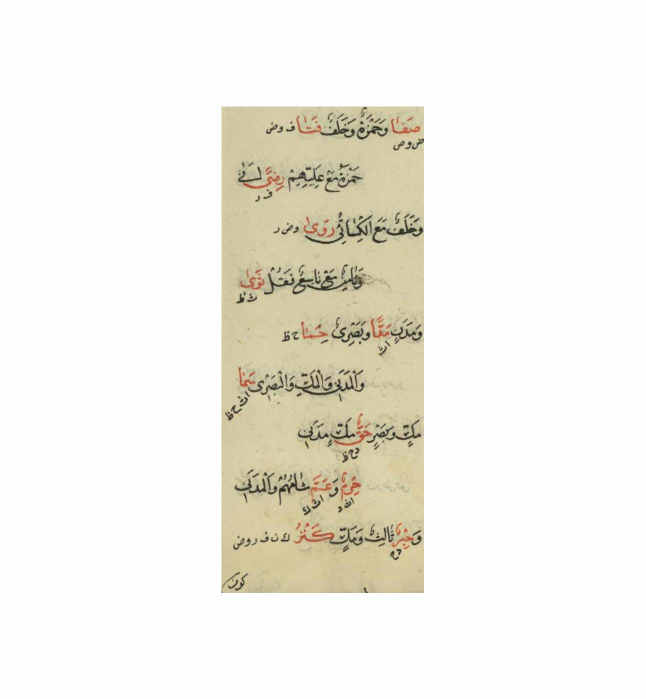 صَفَا وَحَمْزَةٌ وَخَلَفٌ فَتَا ف و ض
ص و ض
حَمْزَةُ مَعْ عَلِيِّهِمْ رِضًى
ف ر
وَخَلَفٌ مَعَ الكِسَائِيِّ رَوَى و ض ر
وَثَامِنٌ مَعْ تَاسِعٍ فَقُلْ ثَوَى
ث ظ
وَمَدَنٍ مَدًّا وَبَصْرِيٍّ حِمَا ح ظ
ا ث
وَالْمَدَنِي وَالْمَكِّ وَالْبَصْرِي سَمَا
ا ث د ح ظ
مَكٍّ وَبَصْرٍ حَقُّ مَكٍّ مَدَنِي
د ح ظ
حِرْمٌ وَعَمَّ شَامُهُمْ وَالْمَدَنِي
ا ث د
ا ث ك
وَحَبْرُ ثَالِثٌ وَمَكٍّ كَنْزُ ك ن ف ر و ض
د ح
كوف